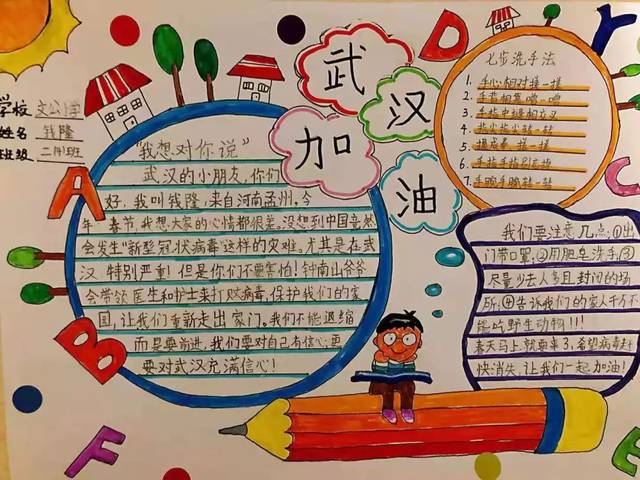 武
汉
加
油
学校 文公小学
姓名 钱隆
班级 二(1)班
"我想对你说"
武汉的小朋友,你们
好,我叫钱隆,来自河南孟州。今
年春节,我想大家的心情都很差。没想到中国竟然
会发生"新型冠状病毒"这样的灾难。尤其是在武
汉特别严重!但是你们不要害怕!钟南山爷爷
会带领医生和护士来打败病毒,保护我们的家
国,让我们重新走出家门。我们不能退缩
而是要前进,我们要对自己有信心,更
要对武汉充满信心!
七步洗手法
1. 手心相对搓一搓
2. 手背相靠蹭一蹭
3. 手指中缝相交叉
4. 指尖指尖转一转
5. 握成拳 搓一搓
6. 手指手指别忘掉
7. 手腕手腕转一转
我们要注意几点:①出
门带口罩,②用肥皂洗手,③
尽量少去人多且封闭的场
所,④告诉我们的家人千万不
能吃野生动物!!!
春天马上就要来了,希望病毒赶
快消失,让我们一起加油!
A
B
F
D
Y
C
E